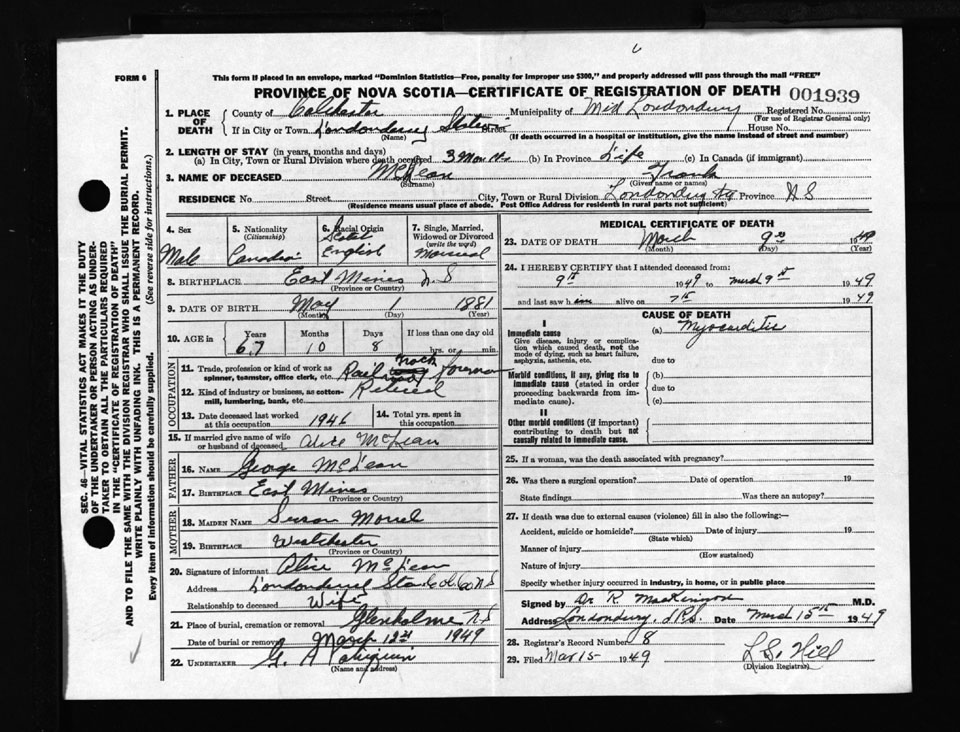 6
FORM 6
This form if placed in an envelope, marked "Dominion Statistics—Free, penalty for improper use $300," and properly addressed will pass through the mail "FREE"
PROVINCE OF NOVA SCOTIA—CERTIFICATE OF REGISTRATION OF DEATH 001939
SEC. 46—VITAL STATISTICS ACT MAKES IT THE DUTY
OF THE UNDERTAKER OR PERSON ACTING AS UNDER-
TAKER TO OBTAIN ALL THE PARTICULARS REQUIRED
IN THE "CERTIFICATE OF REGISTRATION OF DEATH"
AND TO FILE THE SAME WITH THE DIVISION REGISTRAR WHO SHALL ISSUE THE BURIAL PERMIT.
WRITE PLAINLY WITH UNFADING INK. THIS IS A PERMANENT RECORD.
Every item of information should be carefully supplied. (See reverse side for instructions.)
1. PLACE OF DEATH
County of Colchester Municipality of Mid Londonderry Registered No.
(For use of Registrar General only)
If in City or Town Londonderry Station Street House No.
(Name) (If death occurred in a hospital or institution, give the name instead of street and number)
2. LENGTH OF STAY (in years, months and days)
(a) In City, Town or Rural Division where death occurred 3 Months (b) In Province Life (c) In Canada (if immigrant)
3. NAME OF DECEASED McLean Frank
(Surname) (Given name or names)
RESIDENCE No. Street City, Town or Rural Division Londonderry Province N S
(Residence means usual place of abode. Post Office Address for residents in rural parts not sufficient)
4. Sex
Male
5. Nationality
(Citizenship)
Canadian
6. Racial Origin
Scotch
English
7. Single, Married,
Widowed or Divorced
(write the word)
Married
8. BIRTHPLACE East Mines N S
(Province or Country)
9. DATE OF BIRTH May 1 1881
(Month) (Day) (Year)
10. AGE in
Years Months Days If less than one day old
67 10 8 hrs. or min.
OCCUPATION
11. Trade, profession or kind of work as
spinner, teamster, office clerk, etc. Railroad Track foreman
12. Kind of industry or business, as cotton-
mill, lumbering, bank, etc. Retired
13. Date deceased last worked
at this occupation 1946
14. Total yrs. spent in
this occupation
15. If married give name of wife
or husband of deceased Alice McLean
FATHER
16. NAME George McLean
17. BIRTHPLACE East Mines
(Province or Country)
MOTHER
18. MAIDEN NAME Susan
19. BIRTHPLACE Westchester
(Province or Country)
20. Signature of informant Alice McLean
Address Sta Col. Co N S
Relationship to deceased Wife
21. Place of burial, cremation or removal Glenholme N S
Date of burial or removal March 12th 1949
22. UNDERTAKER G. A
(Name and address)
MEDICAL CERTIFICATE OF DEATH
23. DATE OF DEATH March 9th 1949
(Month) (Day) (Year)
24. I HEREBY CERTIFY that I attended deceased from:
9th 1949 to March 9th 1949
and last saw him alive on 7th 1949
CAUSE OF DEATH
I
Immediate cause
Give disease, injury or complica-
tion which caused death, not the
mode of dying, such as heart failure,
asphyxia, asthenia, etc.
(a) Myocarditis
due to
Morbid conditions, if any, giving rise to
immediate cause (stated in order
proceeding backwards from im-
mediate cause).
(b)
due to
(c)
II
Other morbid conditions (if important)
contributing to death but not
causally related to immediate cause.
25. If a woman, was the death associated with pregnancy?
26. Was there a surgical operation? Date of operation 19
State findings Was there an autopsy?
27. If death was due to external causes (violence) fill in also the following:—
Accident, suicide or homicide? Date of injury 19
(State which)
Manner of injury
(How sustained)
Nature of injury
Specify whether injury occurred in industry, in home, or in public place
Signed by Dr R. MacKinnon M.D.
Address Londonderry, N.S. Date March 15th 1949
28. Registrar's Record Number 8
29. Filed Mar 15 1949 L. S. Hill
(Division Registrar)